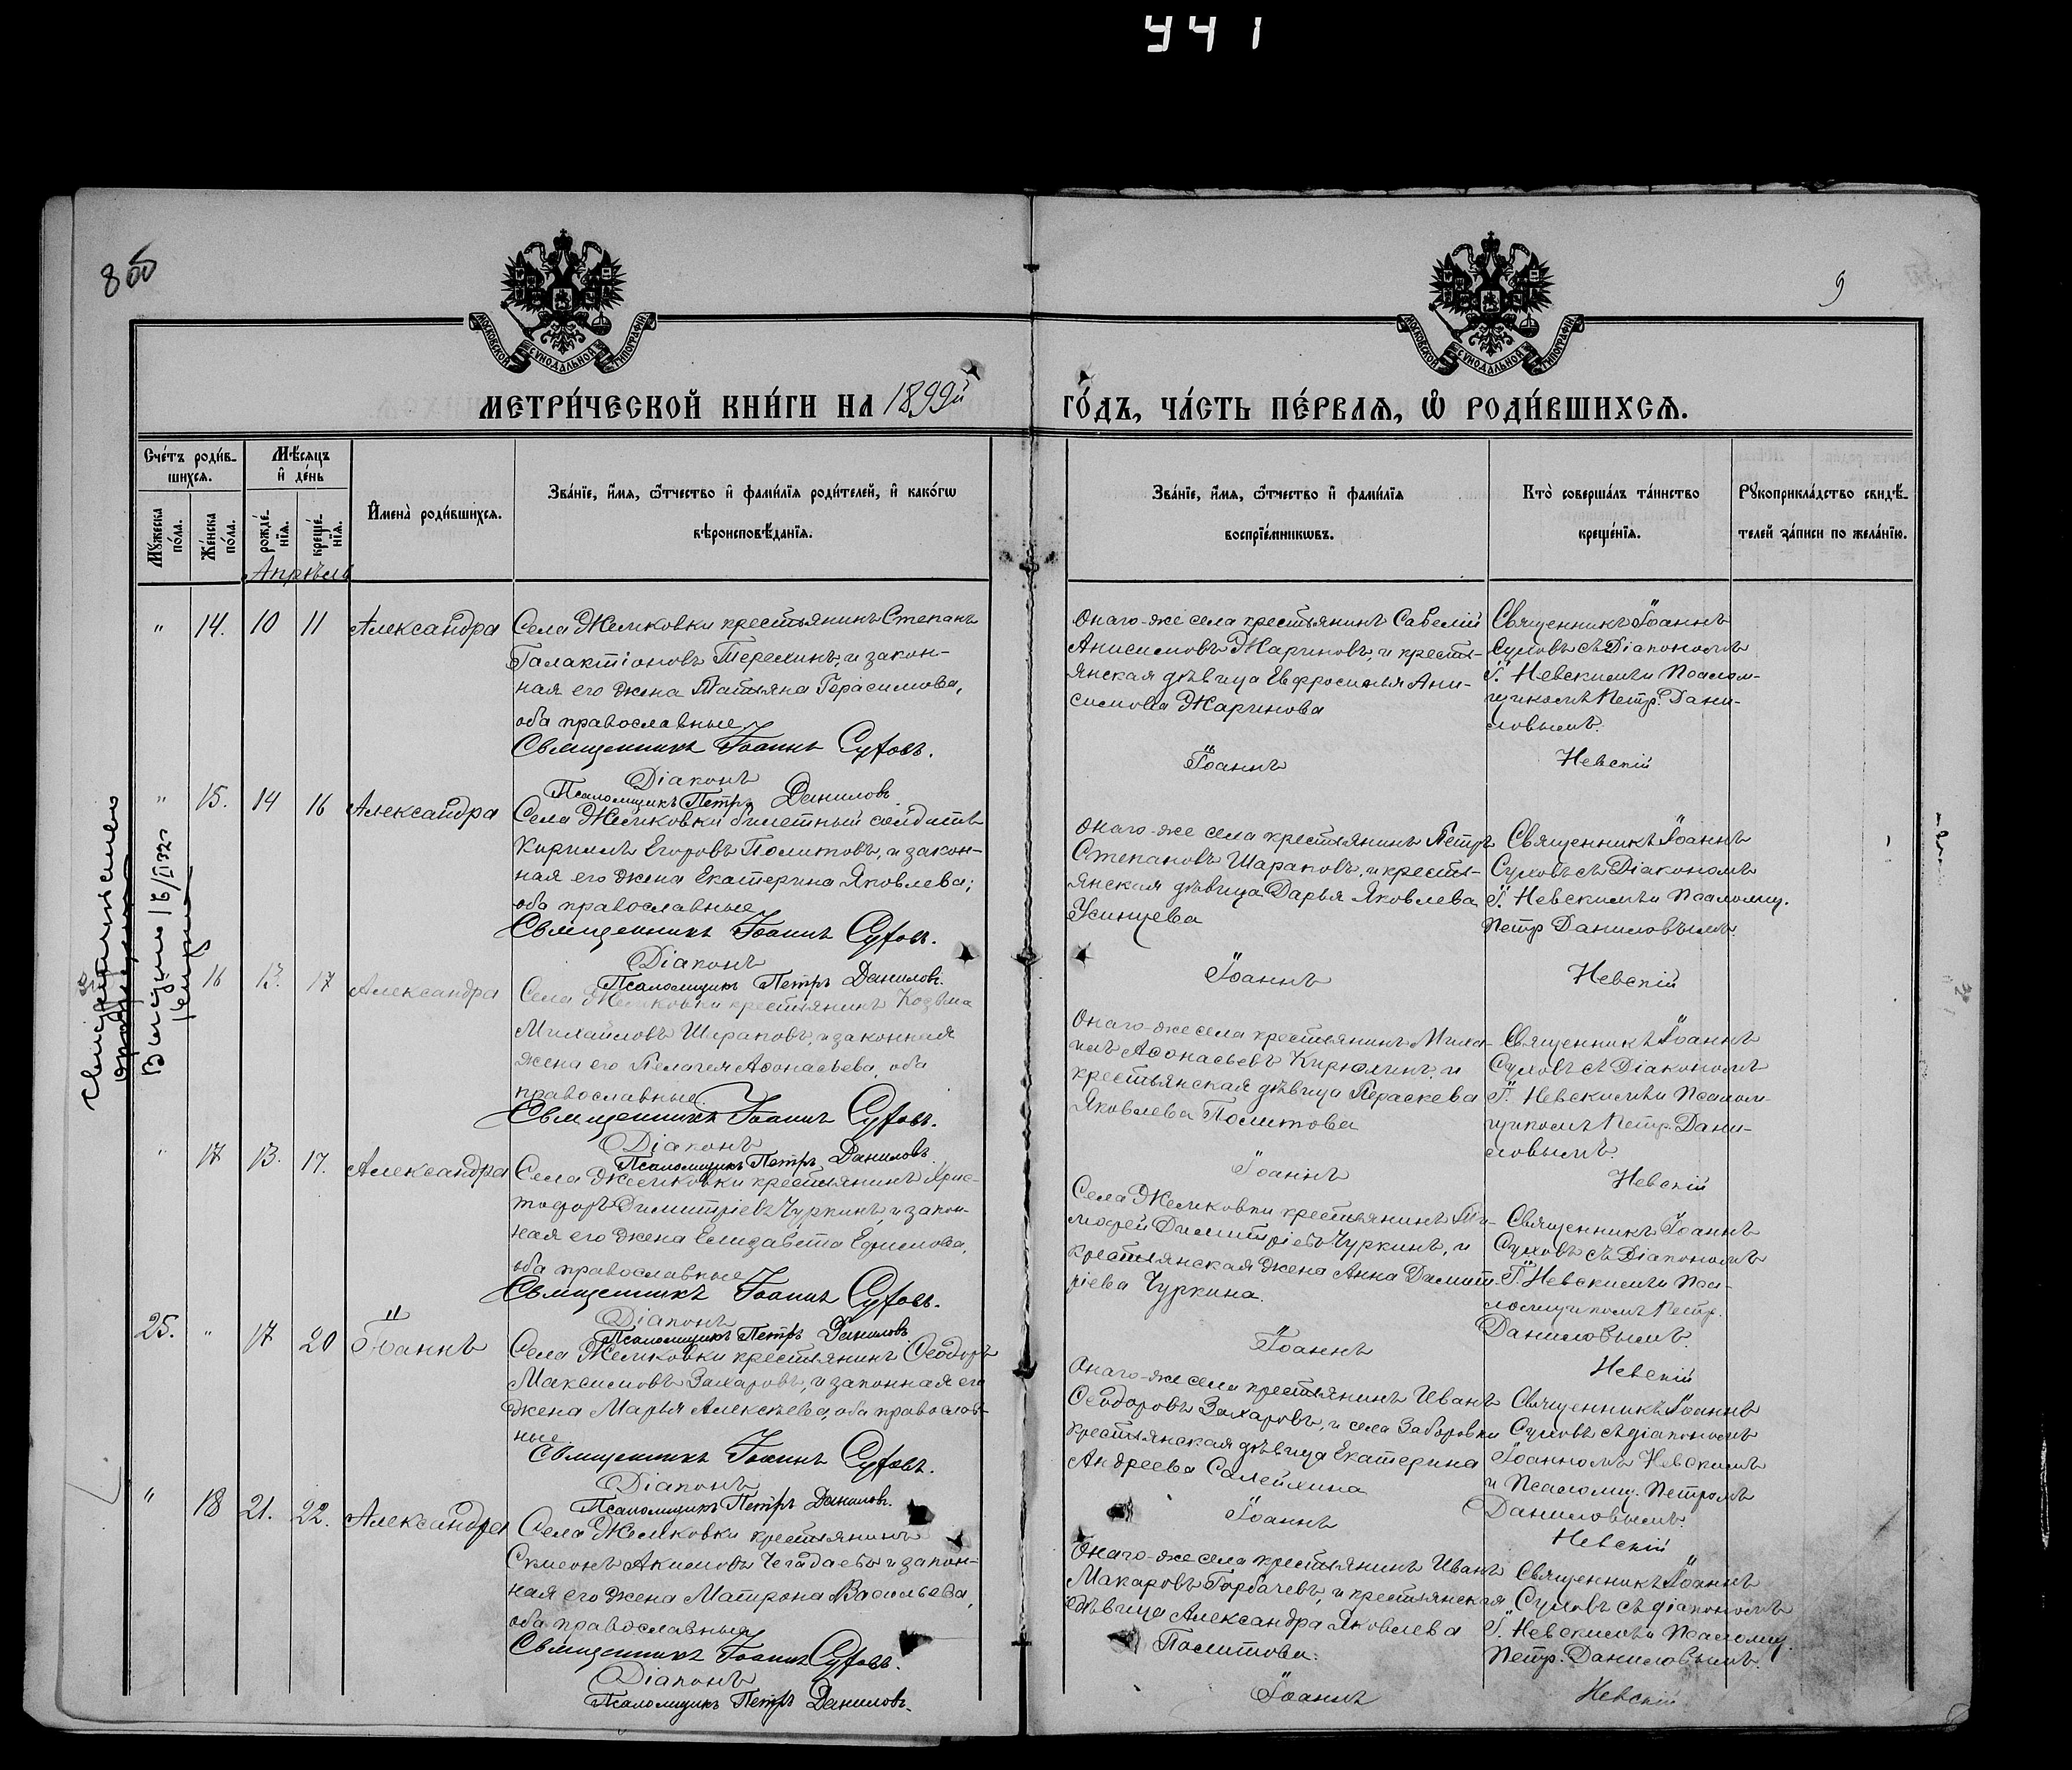 941
8 об
9
МОСКОВСКОЙ СѴНОДАЛЬНОЙ ТИПОГРАФІИ
МОСКОВСКОЙ СѴНОДАЛЬНОЙ ТИПОГРАФІИ
МЕТРИ́ЧЕСКОЙ КНИ́ГИ НА 1899й
ГО́ДЪ, ЧА́СТЬ ПЕ́РВАѦ, Ѡ҆ РОДИ́ВШИХСѦ.
Сче́тъ роди́в-
шихсѧ.
Мꙋ́жеска по́ла.
Же́нска по́ла.
Мѣ́сѧцъ
и҆ де́нь
рожде́-нїѧ.
креще́-нїѧ.
И҆мена̀ роди́вшихсѧ.
Зва́нїе, и҆́мѧ, ѻ҆́тчество и҆ фами́лїѧ роди́телей, и҆ како́гѡ
вѣроисповѣ́данїѧ.
Зва́нїе, и҆́мѧ, ѻ҆́тчество и҆ фами́лїѧ
воспрїе́мникѡвъ.
Кто̀ соверша́лъ та́инство
креще́нїѧ.
Рꙋкоприкла́дство свидѣ́-
телей за́писи по жела́нїю.
Апрѣль
" 14. 10 11 Александра
Села Жемковки крестьянинъ Степанъ
Галактіоновъ Терехинъ, и закон-
ная его жена Татьяна Герасимова,
оба православные
Священникъ Іоаннъ Суховъ.
Діаконъ
Псаломщикъ Петръ Данилов
Онаго-же села крестьянинъ Савелій
Анисимовъ Жариновъ, и кресть-
янская дѣвица Евфросинья Ани-
симова Жаринова
Іоаннъ
Священникъ Іоаннъ
Суховъ съ Діакономъ
І. Невскимъ и Псалом-
щикомъ Петр. Дани-
ловымъ.
Невскій
" 15. 14 16 Александра
Села Жемковки билетный солдатъ
Кириллъ Егоровъ Политовъ, и закон-
ная его жена Екатерина Яковлева;
оба православные
Священникъ Іоаннъ Суховъ.
Діаконъ
Псаломщикъ Петръ Данилов.
Онаго-же села крестьянинъ Петръ
Степановъ Шараповъ, и кресть-
янская дѣвица Дарья Яковлева
Усинцева
Іоаннъ
Священникъ Іоаннъ
Суховъ съ Діакономъ
І. Невскимъ и Псаломщ.
Петр Даниловымъ.
Невскій
16 13. 17 Александра
Села Жемковки крестьянинъ Козьма
Михайловъ Шараповъ, и законная
жена его Пелагея Афонасьева, оба
православные.
Священникъ Іоаннъ Суховъ.
Діаконъ
Псаломщикъ Петръ Данилов.
Онаго-же села крестьянинъ Миха-
илъ Афонасьевъ Кирюхинъ, и
крестьянская дѣвица Параскева
Яковлева Политова
Іоаннъ
Священникъ Іоаннъ
Суховъ съ Діакономъ
І. Невскимъ и Псалом-
щикомъ Петр. Дани-
ловымъ.
Невскій
" 17 13. 17. Александра
Села Жемковки крестьянинъ Хрис-
тофоръ Димитріевъ Чуркинъ, и закон-
ная его жена Елизавета Ефимова,
оба православные
Священникъ Іоаннъ Суховъ.
Діаконъ
Псаломщикъ Петръ Данилов
Села Жемковки крестьянинъ Ти-
мофей Димитріевъ Чуркинъ, и
крестьянская жена Анна Димит-
ріева Чуркина.
Іоаннъ
Священникъ Іоаннъ
Суховъ съ Діакономъ
І. Невскимъ и Пса-
ломщикомъ Петр.
Даниловымъ.
Невскій
25. " 17 20 Іоаннъ
Села Жемковки крестьянинъ Ѳеодоръ
Максимовъ Захаровъ, и законная его
жена Марья Алексѣева, оба православ-
ные
Священникъ Іоаннъ Суховъ.
Діаконъ
Псаломщикъ Петръ Данилов.
Онаго-же села крестьянинъ Иванъ
Ѳеодоровъ Захаровъ, и села Заборовки
крестьянская дѣвица Екатерина
Андреева
Іоаннъ
Священникъ Іоаннъ
Суховъ съ діакономъ
Іоанномъ Невскимъ
и Псаломщ. Петромъ
Даниловымъ.
Невскій
" 18 21. 22. Александра
Села Жемковки крестьянинъ
Симеонъ Акимовъ Чегадаевъ и закон-
ная его жена Матрона Васильева,
оба православныя
Священникъ Іоаннъ Суховъ.
Діаконъ
Псаломщикъ Петръ Данилов.
Онаго-же села крестьянинъ Иванъ
Макаровъ Горбачевъ, и крестьянская
дѣвица Александра Яковлева
Политова.
Іоаннъ
Священникъ Іоаннъ
Суховъ съ діакономъ
І. Невскимъ и Псаломщ.
Петр. Даниловымъ.
Невскій